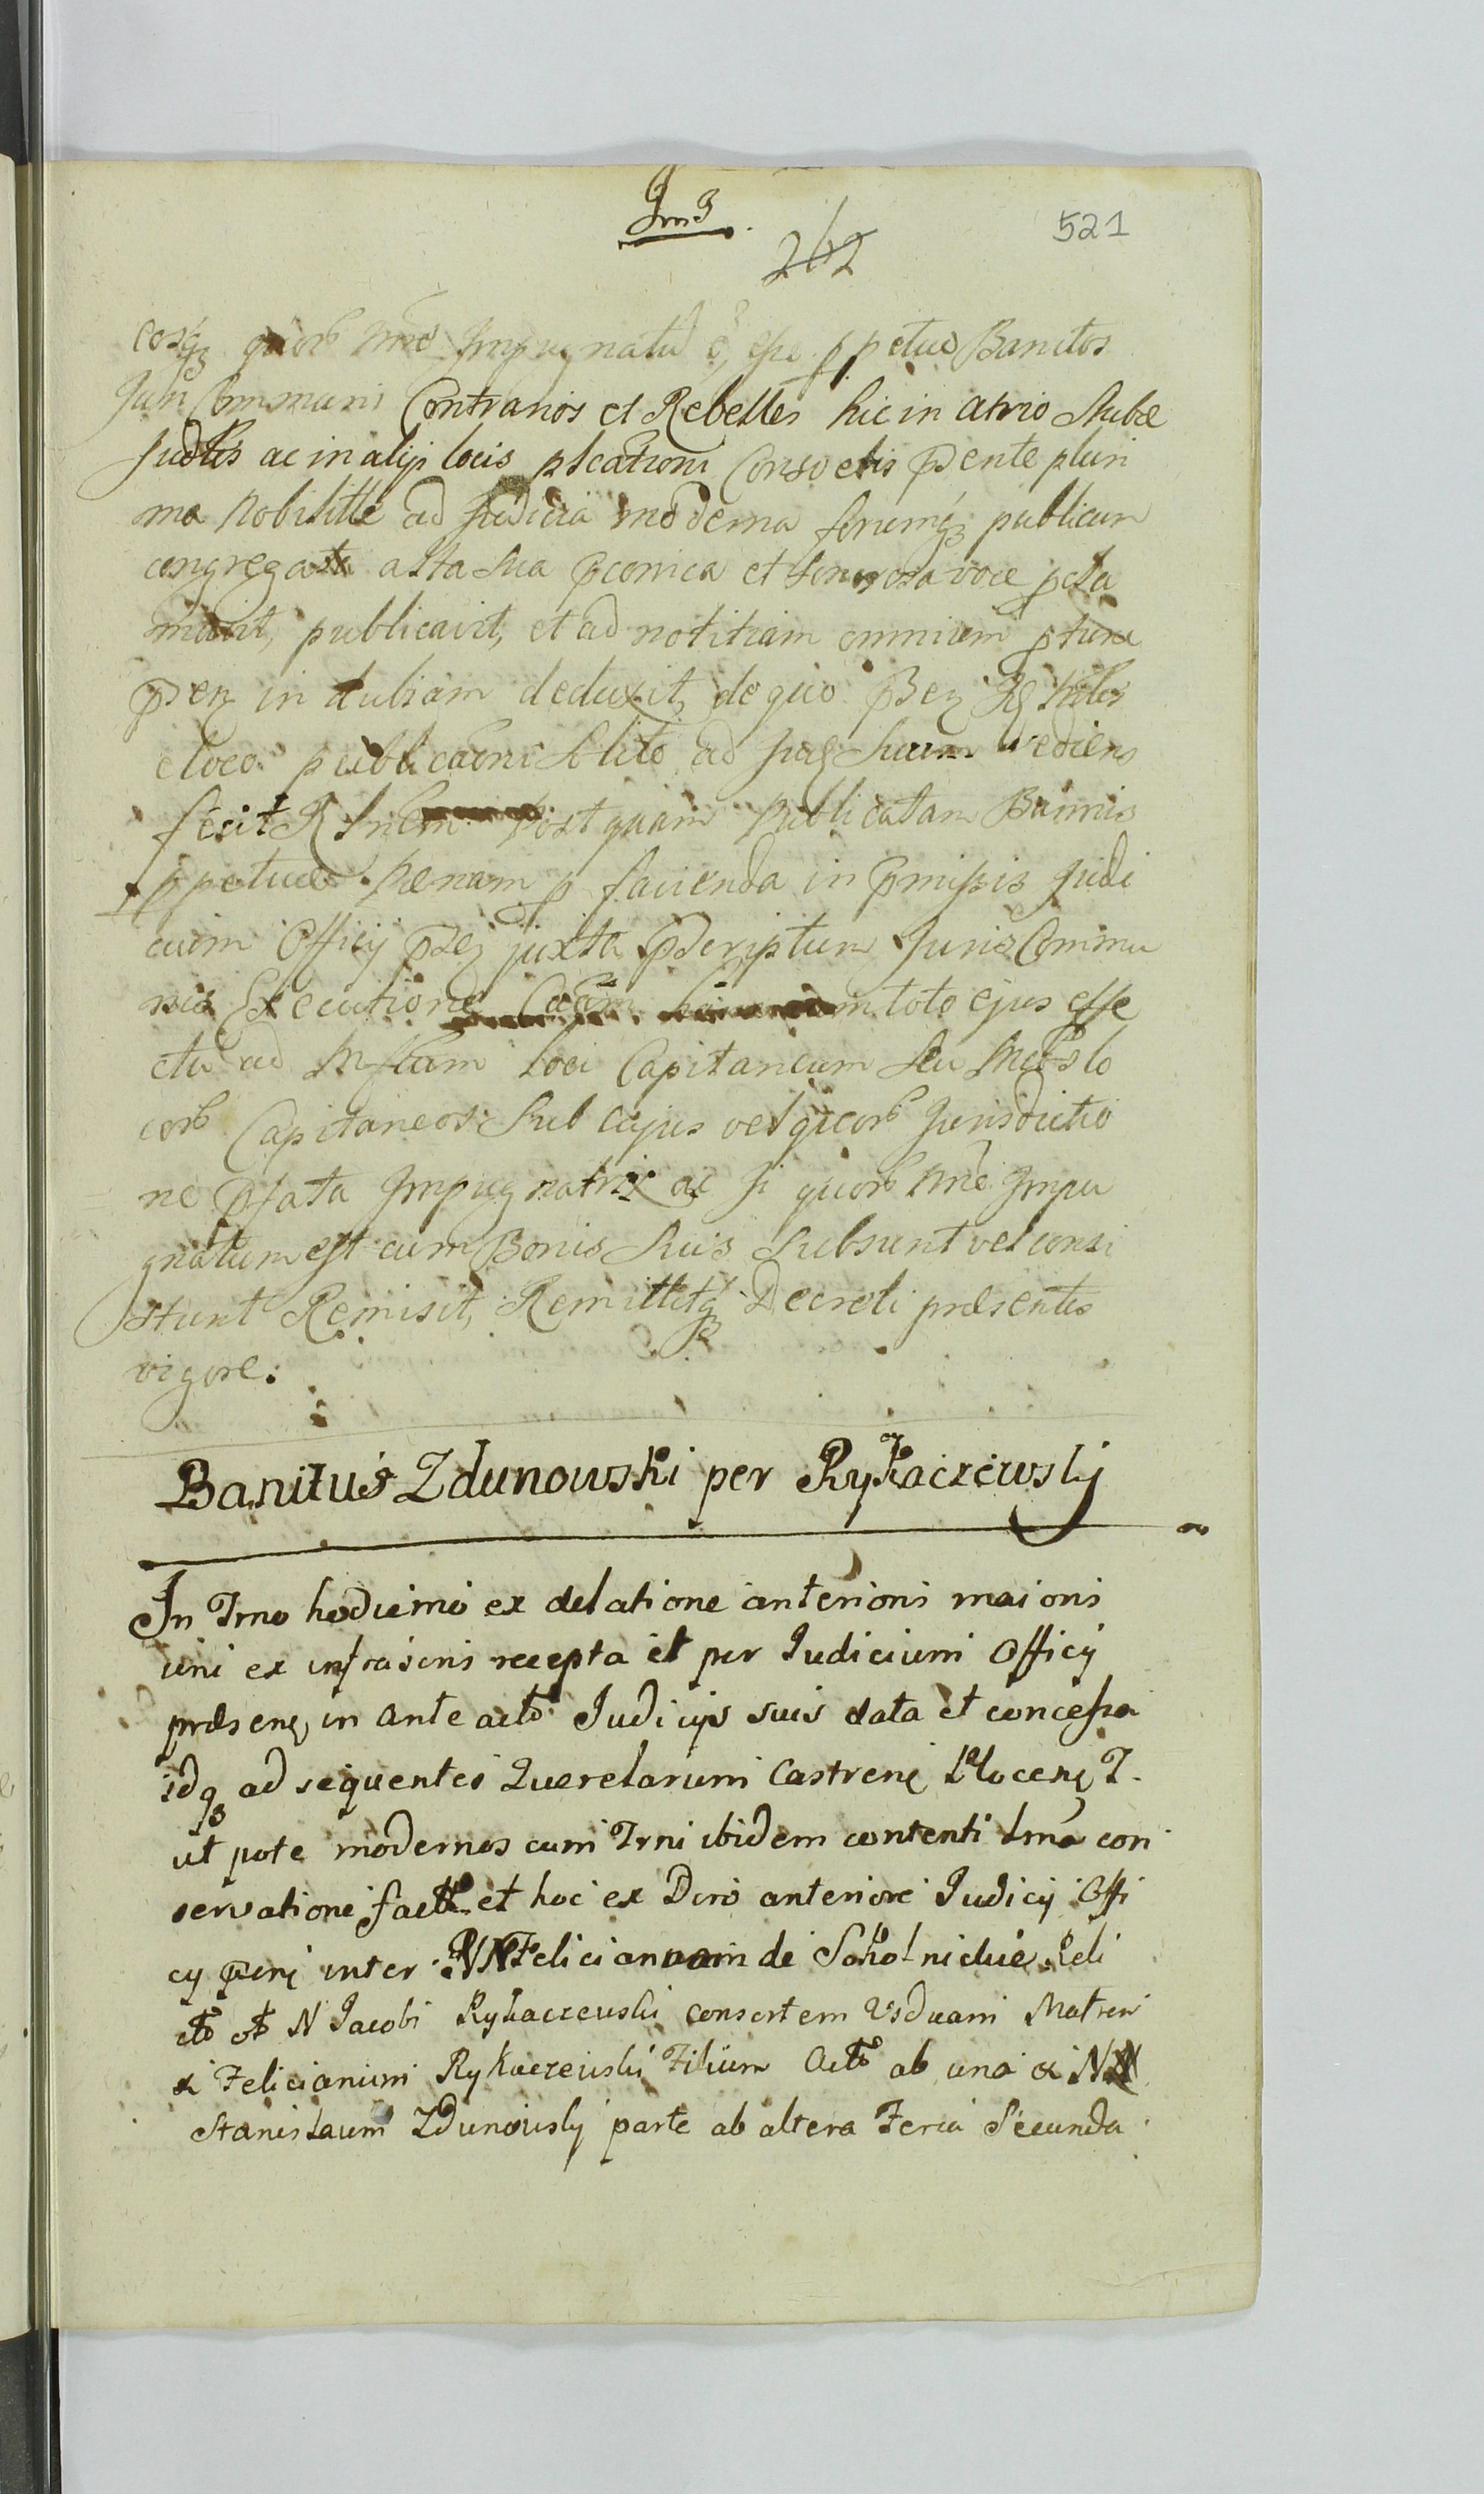 262 521
cosq quorb Impugnatu é, esse ppetuo Banitos
Juri Communi Contrarios et Rebelles hic in atrio Stubæ
Judlis ac in alijs locis plcationi Consvetis pdente pluri
ma Nobilitte ad Judicia moderna forumq publicum
congregata alta sua pconica et sonorosa voce pcla
mavit, publicavit, et ad notitiam omnium
psen in dubiam deduxit, de quo psen
e loco publicaoni solito, ad suum rediens
fecit R Post quam Publicatam Bannis
ppetuæ Pænam p facienda in pmissis Judi
cium Officij psen juxta pscriptum Juris Commu
nis Executione in toto ejus effe
ctu ad Loci Capitaneum seu lo
corb Capitaneos sub cujus vel quorb Jurisdictio
ne pfata Impugnatrix ac ji quorb nme Impu
gnatum est cum Bonis suis subsunt vel consi
stunt Remisit, Remittitq Decreti præsentis
vigore.
Banitus Zdunowski per Rykaczewsky
In Trno hodierno ex delatione anterioris maioris
uni ex infrascris recepta et per Judicium Officij
præsens in ante acto Judicijs suis data et concessa
idq ad sequentes Querelarum Castrens Plocens T.
ut pote modernos cum Trni ibidem contenti con
servatione factte et hoc ex Dcro anteriore Judicij Offi
cij psens inter NN Feliciannam de Reli
cto ot N Jacobi Rykaczewski consortem Vsduam Matrem
& Felicianum Rykaczewski Filium Acto ab una & N
Stanislaum Zdunowsky parte ab altera Feria Secunda